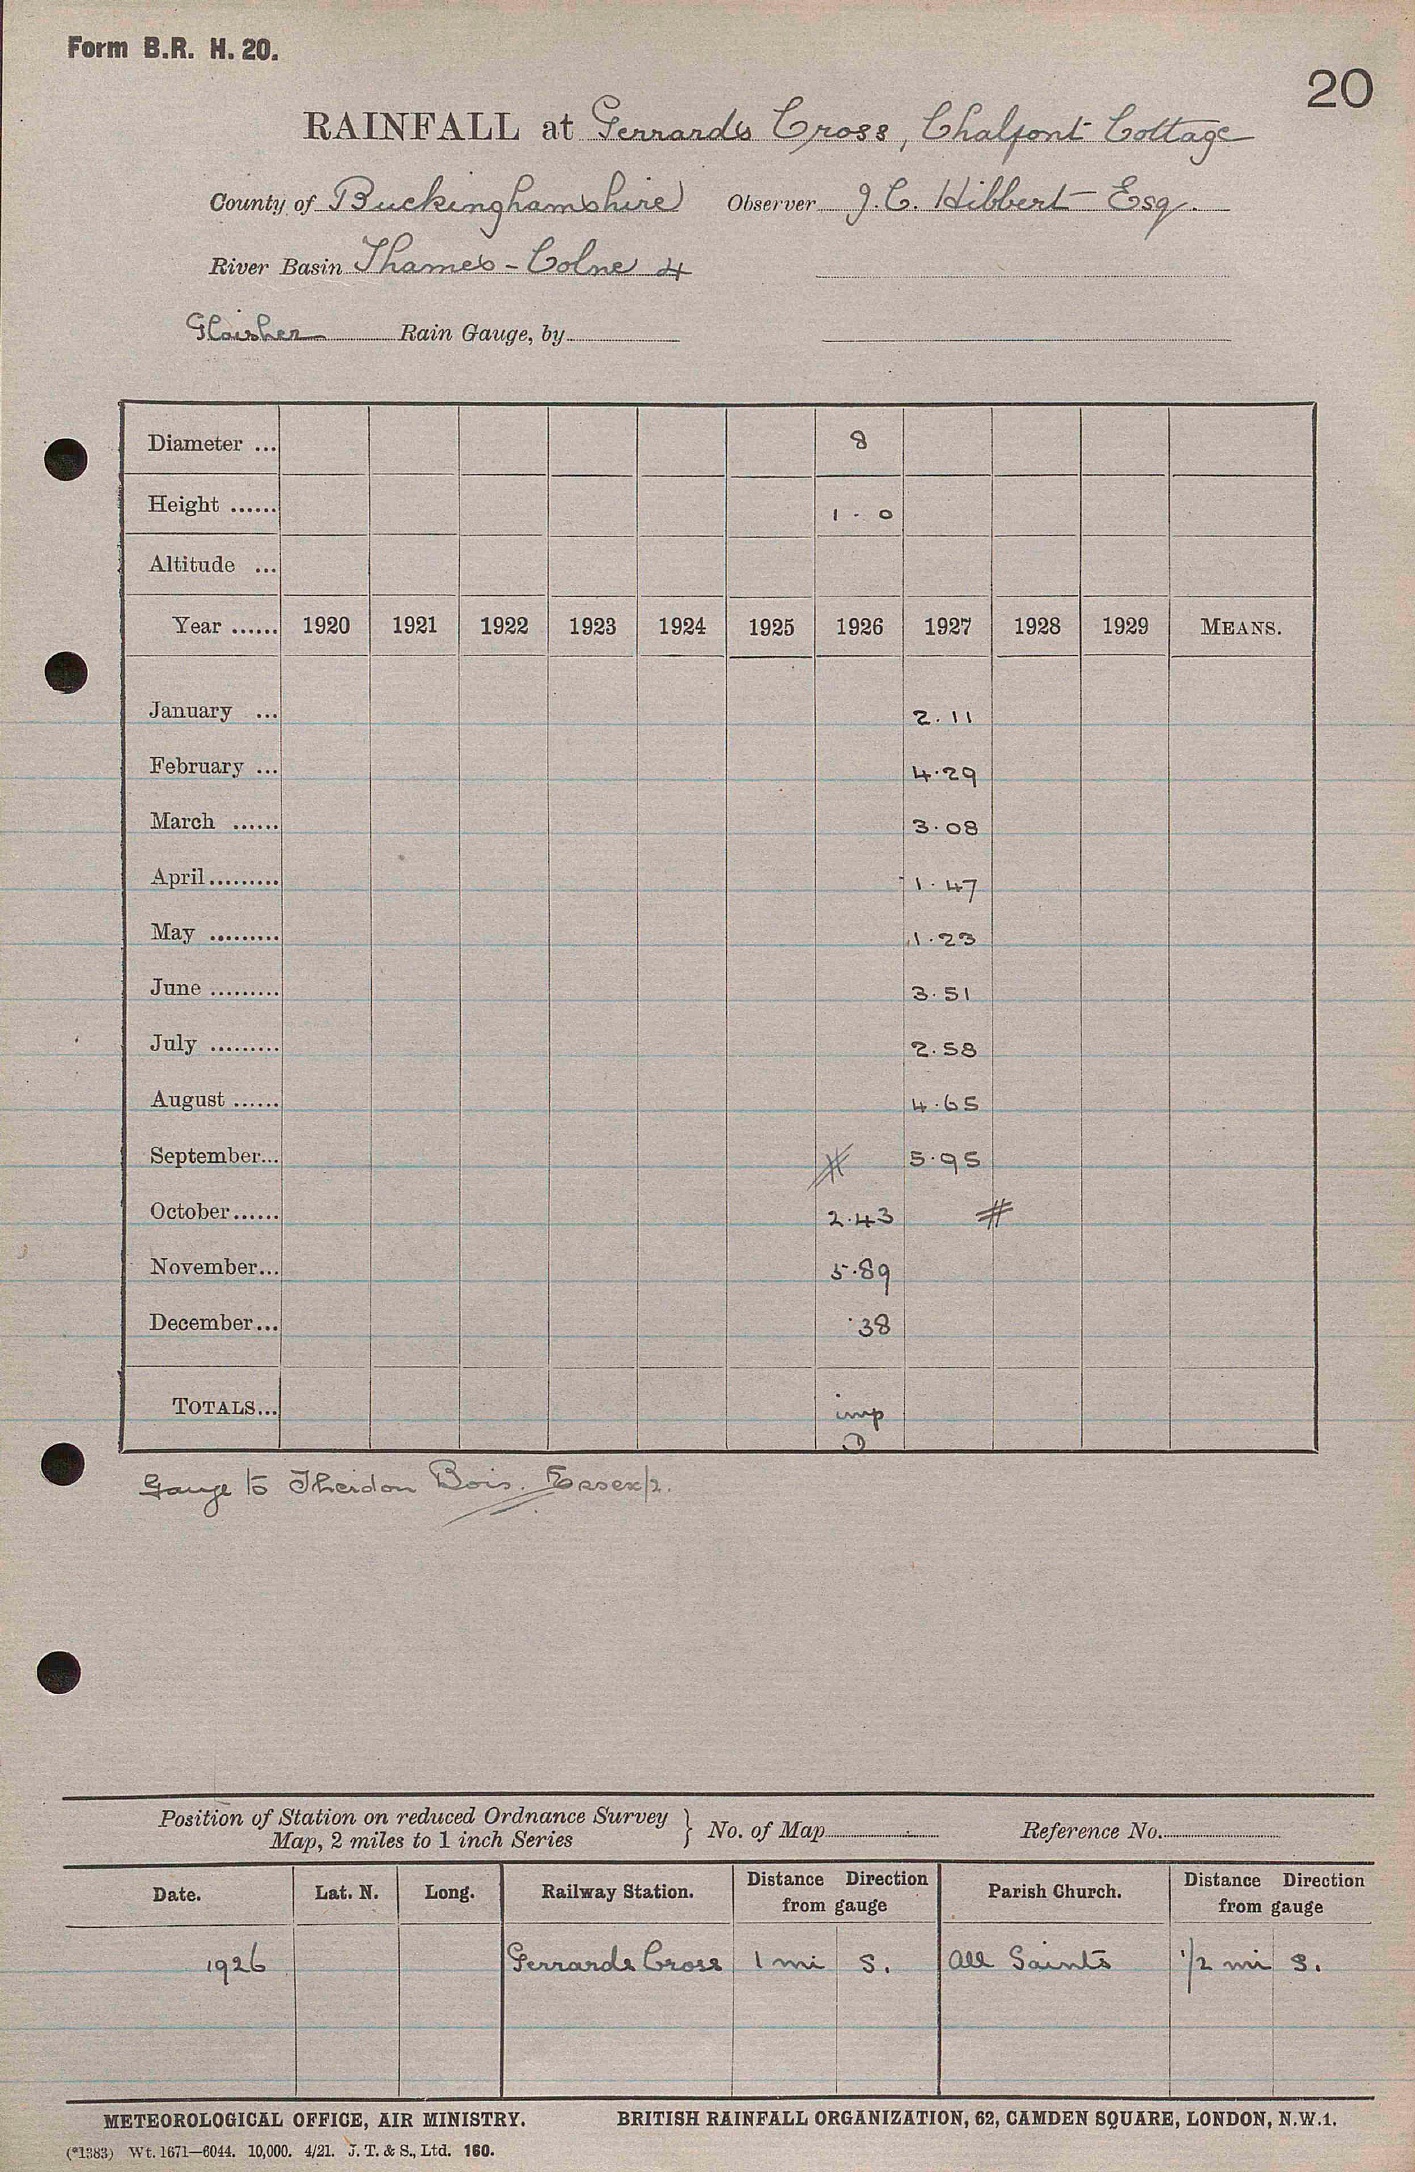 Form B.R. H. 20.
20
RAINFALL at Gerrards Cross, Chalfont Cottage
County of Buckinghamshire Observer J. C. Hibbert Esq.
River Basin Thames - Colne 4
Glaisher Rain Gauge, by
Diameter ... 8
Height ...... 1 - 0
Altitude ...
Year ...... 1920 1921 1922 1923 1924 1925 1926 1927 1928 1929 MEANS.
January ... 2.11
February ... 4.29
March ...... 3.08
April......... 1.47
May ......... 1.23
June ......... 3.51
July ......... 2.58
August ...... 4.65
September... # 5.95
October...... 2.43 #
November... 5.89
December... .38
TOTALS... imp
Gauge to Theidon Bois. Essex/2.
Position of Station on reduced Ordnance Survey
Map, 2 miles to 1 inch Series } No. of Map Reference No.
Date. Lat. N. Long. Railway Station. Distance Direction from gauge Parish Church. Distance Direction from gauge
1926 Gerrards Cross 1 mi S. All Saints 1/2 mi S.
METEOROLOGICAL OFFICE, AIR MINISTRY. BRITISH RAINFALL ORGANIZATION, 62, CAMDEN SQUARE, LONDON, N.W.1.
(*1383) Wt. 1671—6044. 10,000. 4/21. J. T. & S., Ltd. 160.